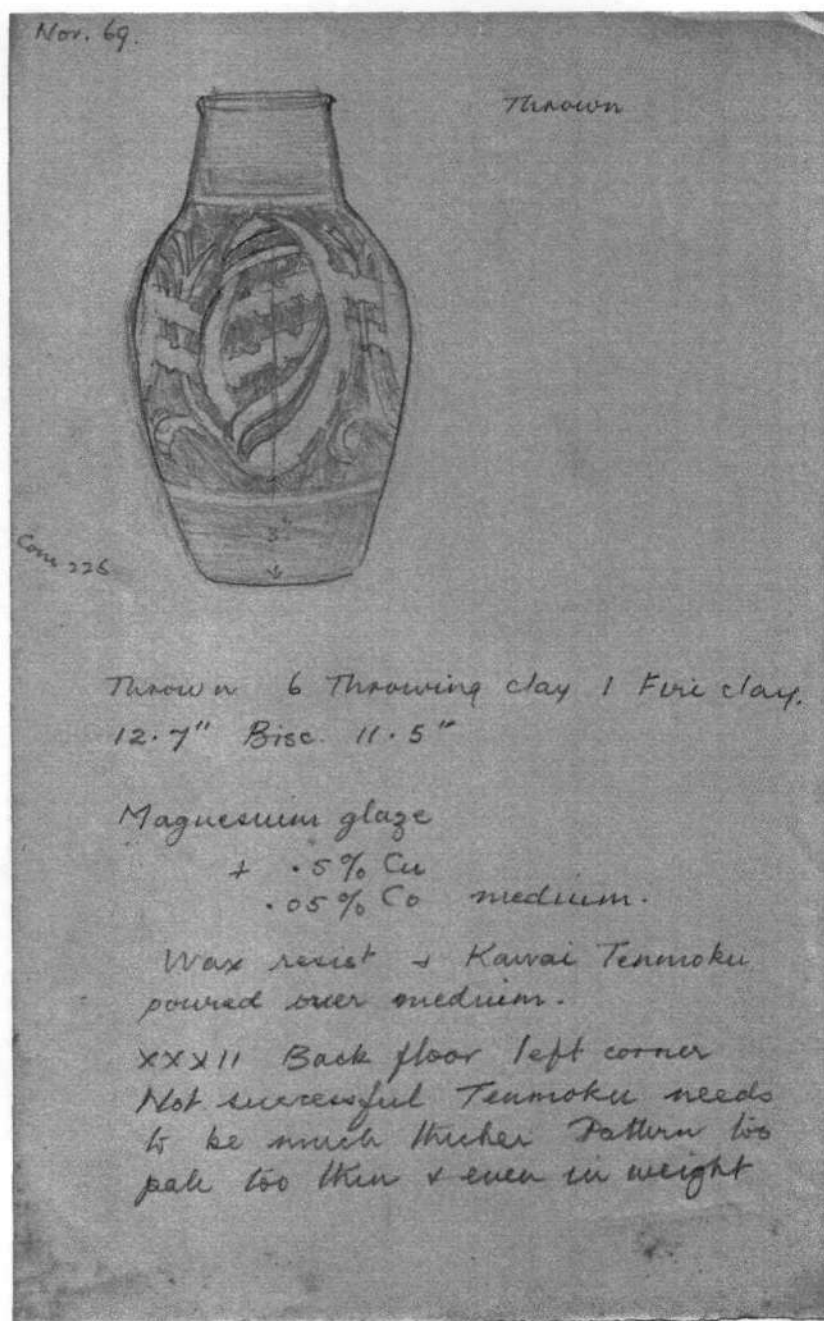 Nov. 69.
Thrown
3"
Com 226
Thrown 6 Throwing clay 1 Fire clay.
12.7" Bisc. 11.5"
Magnesium glaze
+ .5% Cu
.05% Co medium.
Wax resist + Kawai Tenmoku
poured over medium.
XXXII Back floor left corner
Not successful Tenmoku needs
to be much thicker Pattern too
pale too thin & even in weight